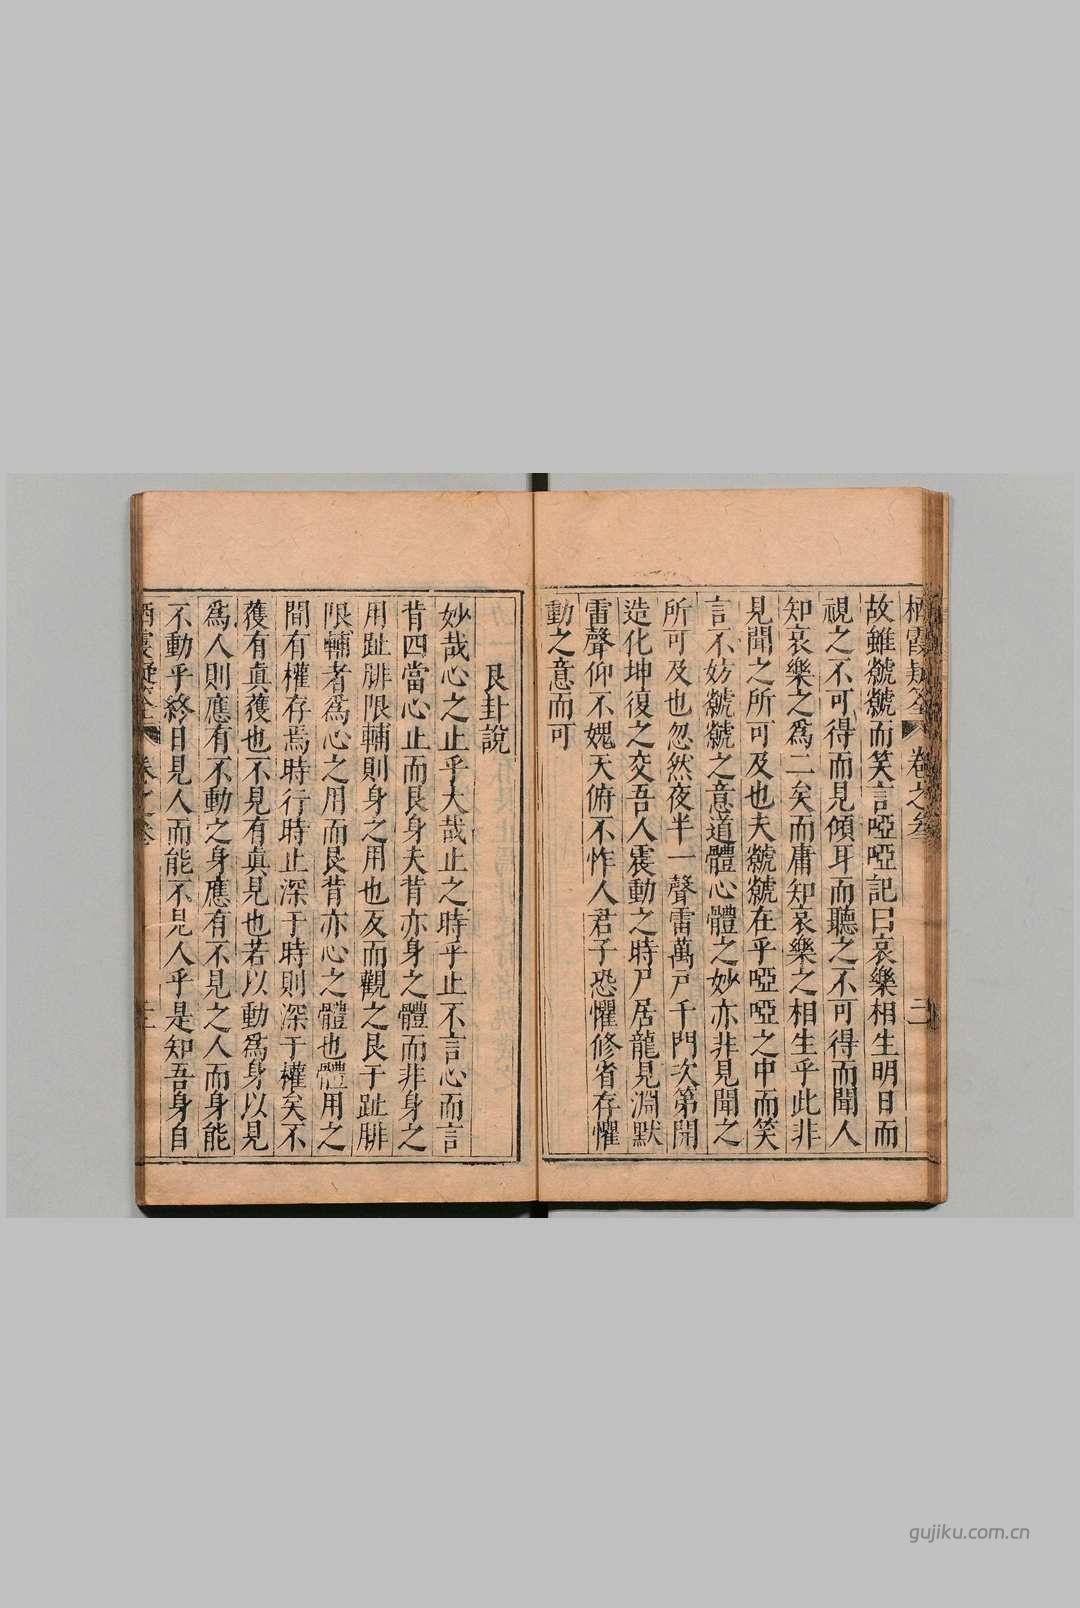 栖霞疑筌 卷之叁 二
故雖虩虩而笑言啞啞記曰哀樂相生明目而
視之不可得而見傾耳而聽之不可得而聞人
知哀樂之爲二矣而庸知哀樂之相生乎此非
見聞之所可及也夫虩虩在乎啞啞之中而笑
言不妨虩虩之意道體心體之妙亦非見聞之
所可及也忽然夜半一聲雷萬戶千門次第開
造化坤復之交吾人震動之時尸居龍見淵默
雷聲仰不媿天俯不怍人君子恐懼修省存懼
動之意而可
艮卦說
妙哉心之止乎大哉止之時乎止不言心而言
背四當心止而艮身夫背亦身之體而非身之
用趾腓限輔則身之用也反而觀之艮于趾腓
限輔者爲心之用而艮背亦心之體也體用之
間有權存焉時行時止深于時則深于權矣不
獲有眞獲也不見有眞見也若以動爲身以見
爲人則應有不動之身應有不見之人而身能
不動乎終日見人而能不見人乎是知吾身自
栖霞疑筌 卷之叁
gujiku.com.cn